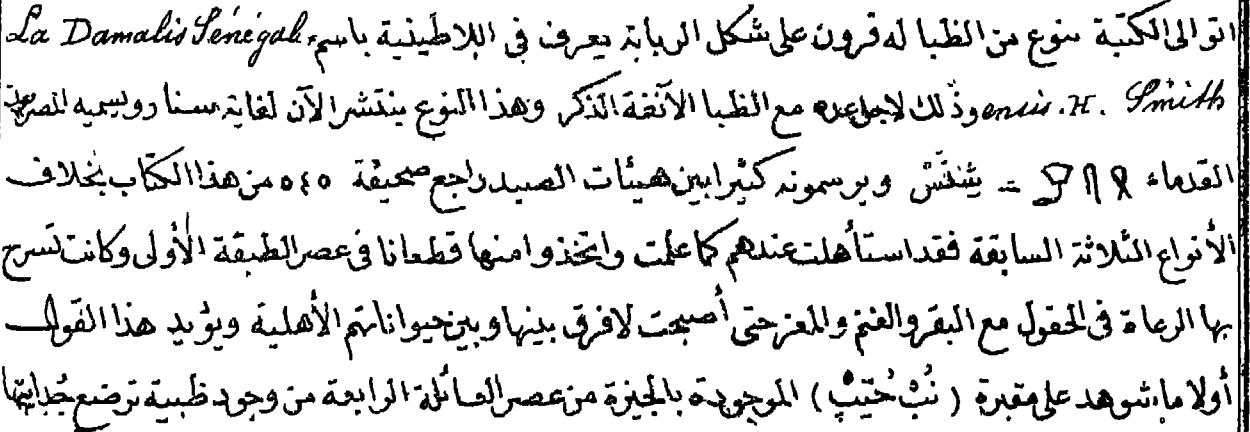 اتو الى الكتبة بنوع من الظبا له قرون على شكل الربابة يعرف فى اللاطينية باسم La Damalis Sénégal
ensis. H. Smith وذلك لاجل عده مع الظبا الآنفة الذكر وهذا النوع ينتشر الآن لغاية سنار ويسميه المصريون
القدماء = يشتش ويرسمونه كثيرا بين هيئات الصيد راجع صحيفة ٥٤٥ من هذا الكتاب بخلاف
الأنواع الثلاثة السابقة فقد استأهلت عندهم كما علمت واتخذوا منها قطعانا فى عصر الطبقة الأولى وكانت تسرح
بها الرعاة فى الحقول مع البقر والغنم والمعز حتى أصبحت لا فرق بينها وبين حيواناتهم الأهلية ويؤيد هذا القول
أولا ما شوهد على مقبرة ( نُبْ حُتِيبْ ) الموجودة بالجيزة من عصر العائلة الرابعة من وجود ظبية ترضع جدايتها